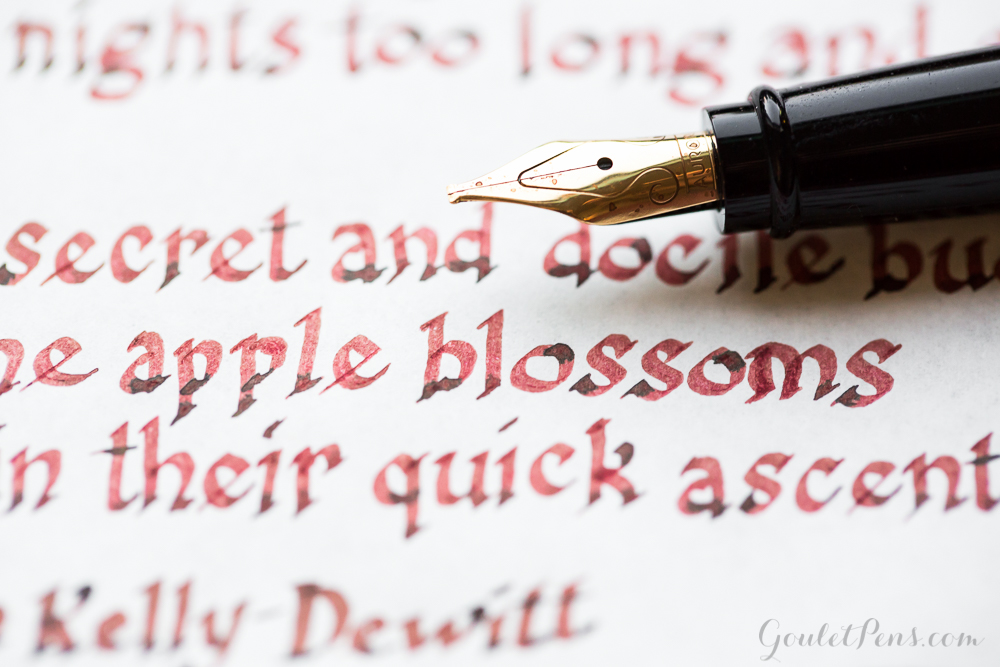 nights too long and
secret and docile bu
ne apple blossoms
in their quick ascent
Kelly-Dewitt
GouletPens.com